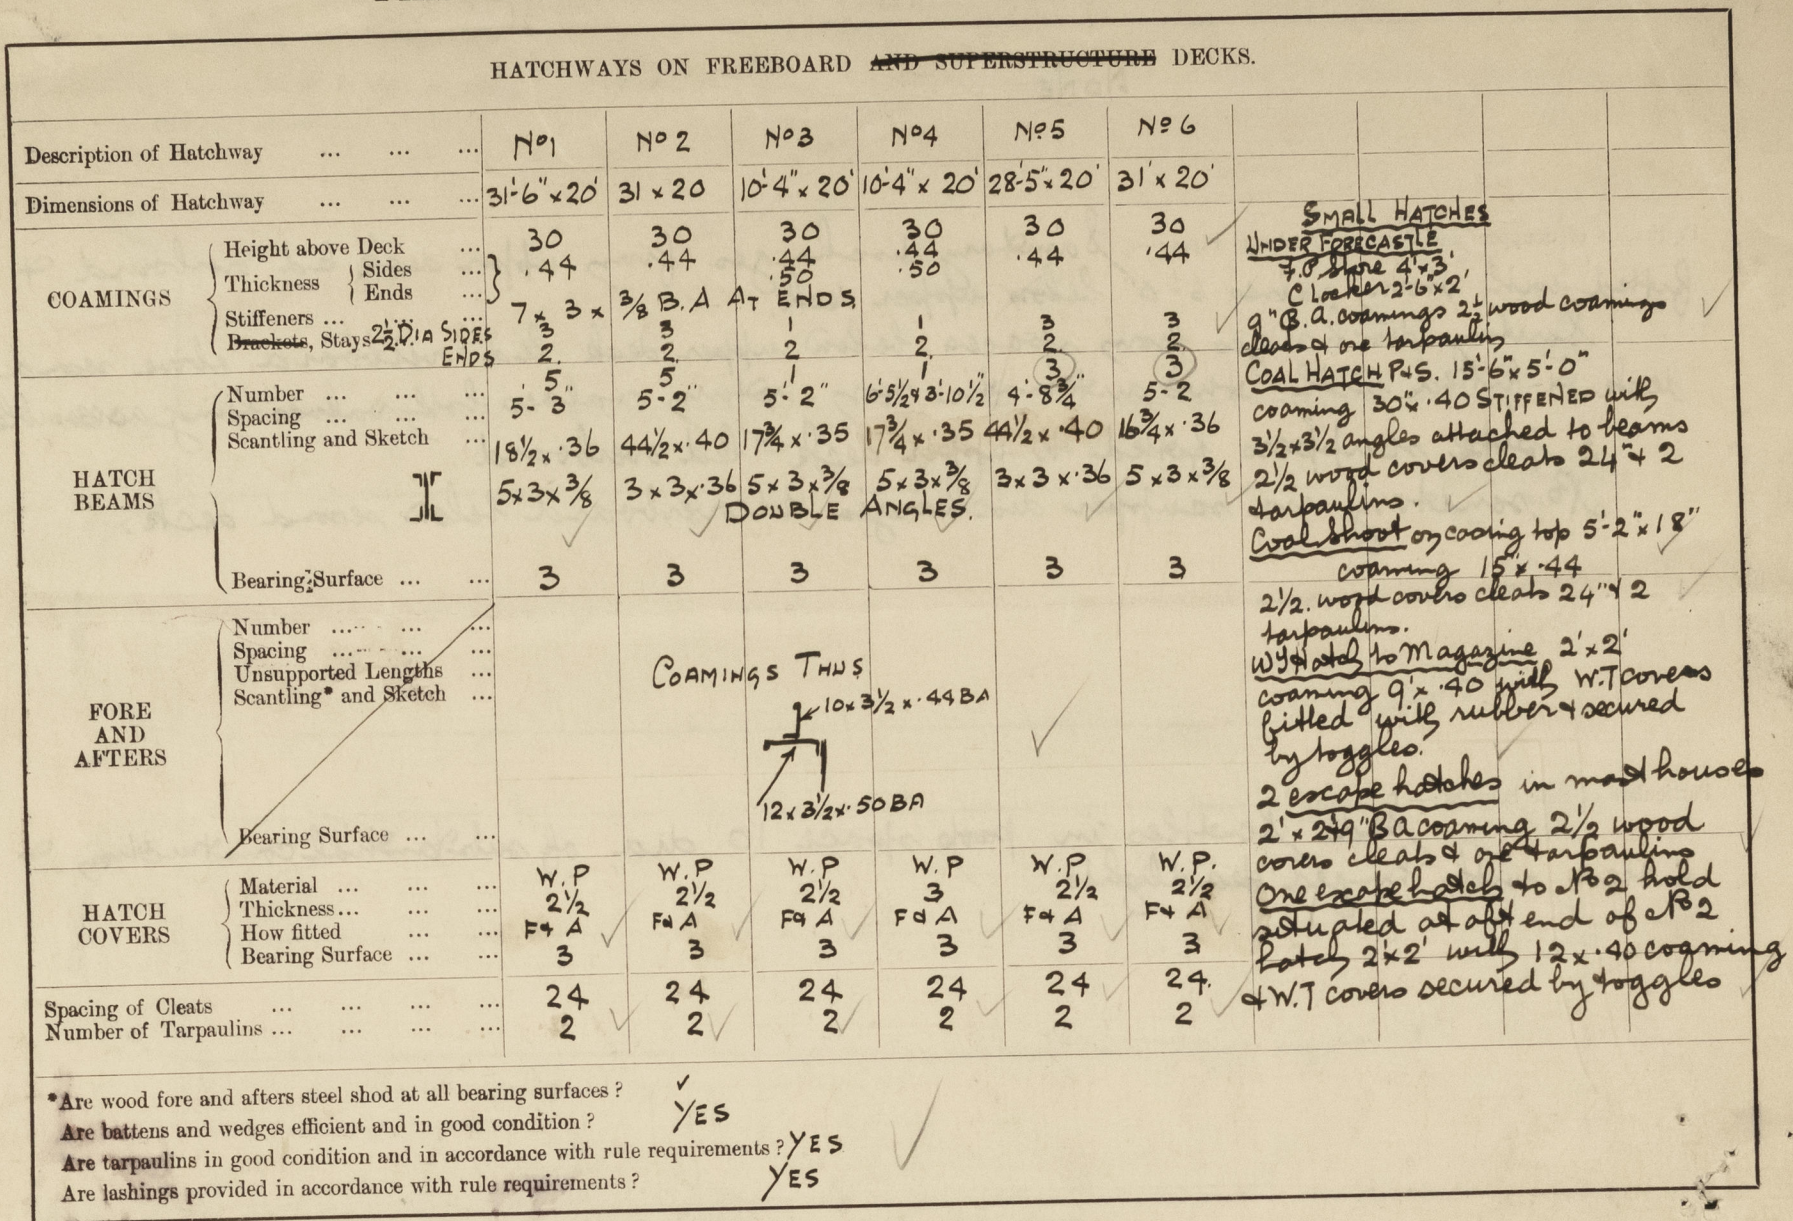 HATCHWAYS ON FREEBOARD AND SUPERSTRUCTURE DECKS.
Description of Hatchway ... ... ... No1 No2 No3 No4 No5 No6
Dimensions of Hatchway ... ... 31'-6"×20' 31×20 10'-4"×20' 10'-4"×20' 28'-5"×20' 31'×20'
COAMINGS
Height above Deck ... 30 30 30 30 30 30
Thickness { Sides ... .44 .44 .44 .44 .44 .44
Ends ... .50 .50
Stiffeners ... ... ... 7 × 3 × 3/8 B.A AT ENDS
Brackets, Stays 2½ DIA SIDES 3 3 1 1 3 3
ENDS 2. 2. 2 2. 2. 2.
HATCH BEAMS
Number ... ... ... 5 5 1 1 3 3
Spacing ... ... ... 5-3" 5-2" 5'-2" 6'-5½ & 3'-10½" 4'-8¾" 5-2
Scantling and Sketch ... 18½ × .36 44½ × .40 17¾ × .35 17¾ × .35 44½ × .40 16¾ × .36
5×3×3/8 3×3×.36 5×3×3/8 5×3×3/8 3×3×.36 5×3×3/8
DOUBLE ANGLES.
Bearing Surface ... ... 3 3 3 3 3 3
FORE AND AFTERS
Number ... ... ...
Spacing ... ... ...
Unsupported Lengths ...
Scantling* and Sketch ...
Bearing Surface ... ...
COAMINGS THUS
10×3½×.44 BA
12×3½×.50 BA
HATCH COVERS
Material ... ... ... W.P W.P W.P W.P W.P W.P.
Thickness ... ... ... 2½ 2½ 2½ 3 2½ 2½
How fitted ... ... F & A F & A F & A F & A F & A F & A
Bearing Surface ... ... 3 3 3 3 3 3
Spacing of Cleats ... ... ... ... 24 24 24 24 24 24.
Number of Tarpaulins ... ... ... ... 2 2 2 2 2 2
SMALL HATCHES
UNDER FORECASTLE
F.P Store 4'×3'
C Locker 2'-6"×2'
9" B.A. coamings 2½ wood coamings
cleats & one tarpaulin
COAL HATCH P&S. 15'-6"×5'-0"
coaming 30"×.40 STIFFENED with
3½×3½ angles attached to beams
2½ wood covers cleats 24" & 2
tarpaulins.
Coal Shoot on casing top 5'-2"×18"
coaming 15"×.44
2½. wood covers cleats 24" & 2
tarpaulins.
WT Hatch to Magazine 2'×2'
coaming 9"×.40 with W.T covers
fitted with rubber & secured
by toggles.
2 escape hatches in mast houses
2'×2' & 9" BA coaming 2½ wood
covers cleats & one tarpaulins
One escape hatch to No 2 hold
situated at aft end of No 2
hatch 2'×2' with 12×.40 coaming
& W.T covers secured by toggles
*Are wood fore and afters steel shod at all bearing surfaces ? ✓
Are battens and wedges efficient and in good condition ? YES
Are tarpaulins in good condition and in accordance with rule requirements ? YES
Are lashings provided in accordance with rule requirements ? YES